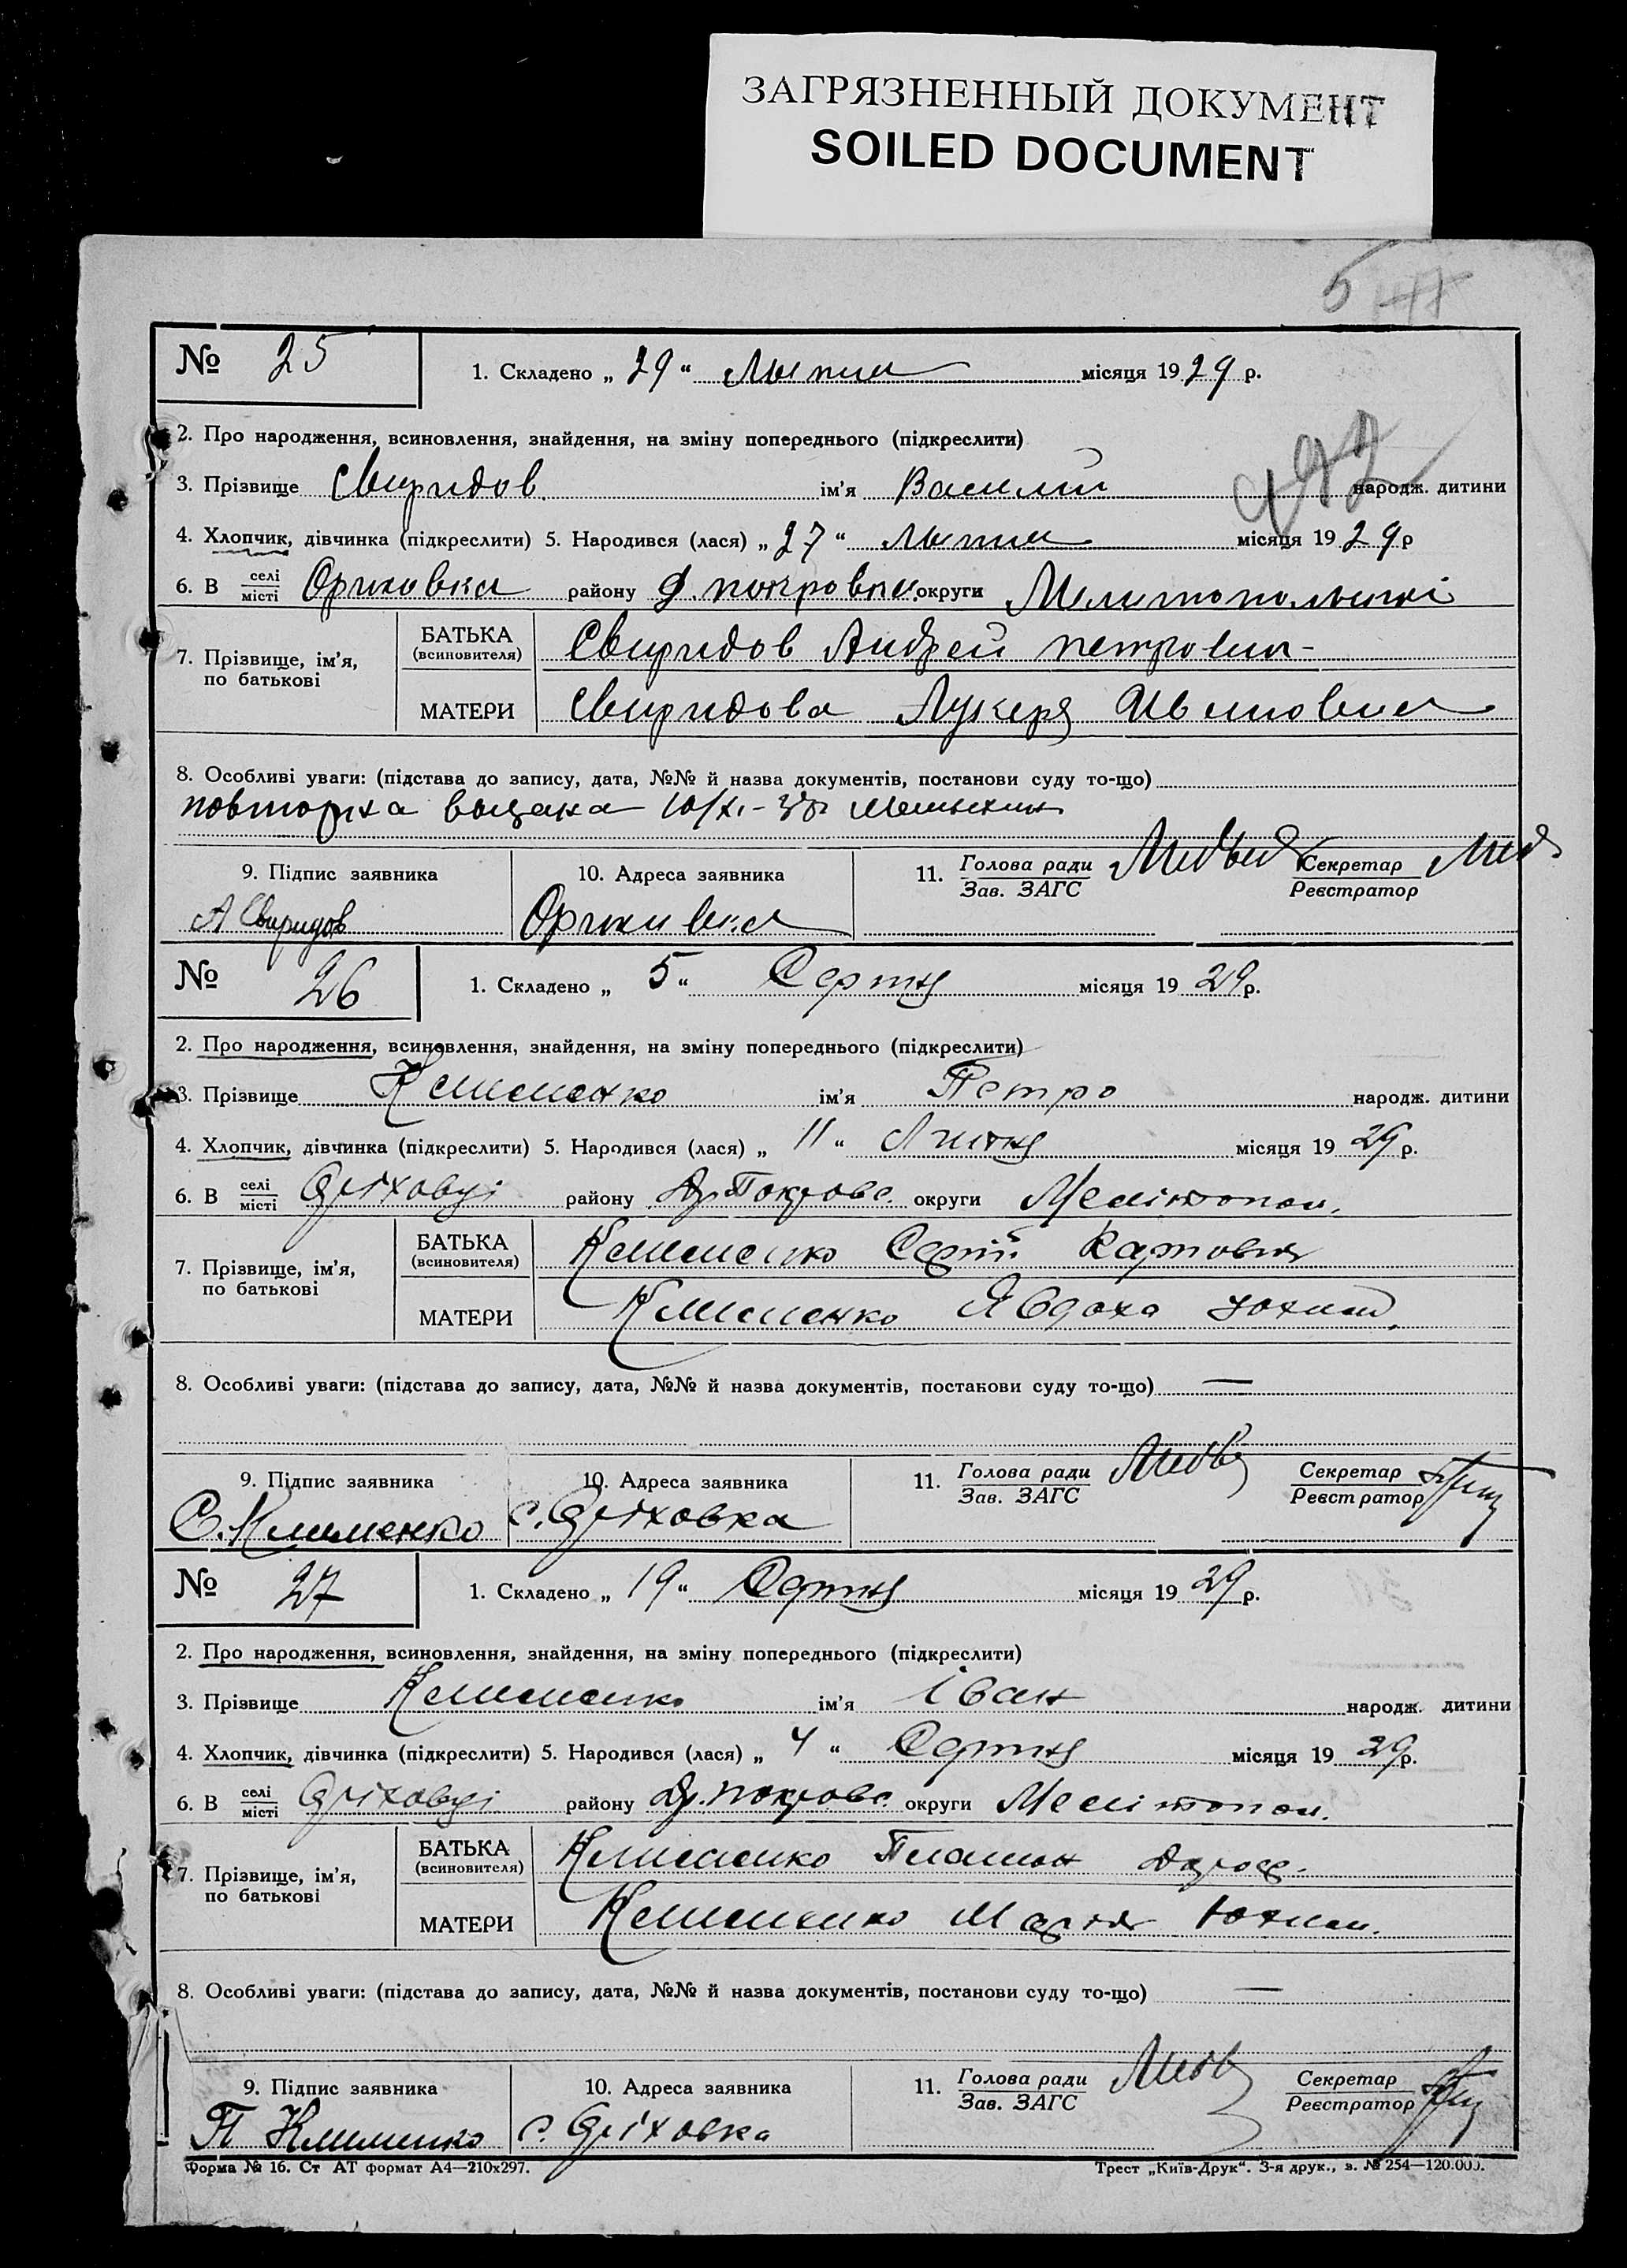 ЗАГРЯЗНЕННЫЙ ДОКУМЕНТ
SOILED DOCUMENT
5
№ 25
1. Складено „ 29 “ Лыпня місяця 1929 р.
2. Про народження, всиновлення, знайдення, на зміну попереднього (підкреслити)
3. Прізвище Свиридов ім'я Василий народж. дитини
4. Хлопчик, дівчинка (підкреслити) 5. Народився (лася) „ 27 “ Лыпня місяця 1929 р
6. В селі/місті Ориховка району покровск. округи Мелитопольскі
7. Прізвище, ім'я, по батькові
БАТЬКА (всиновителя) Свиридов Андрей петрович
МАТЕРИ Свиридова Лукеря Ивановна
8. Особливі уваги: (підстава до запису, дата, №№ й назва документів, постанови суду то-що)
повторка выдана 10/XI-
9. Підпис заявника
10. Адреса заявника
11. Голова ради/Зав. ЗАГС Секретар/Реєстратор
А Свиридов Ориховка
№ 26
1. Складено „ 5 “ Серпня місяця 1929 р.
2. Про народження, всиновлення, знайдення, на зміну попереднього (підкреслити)
3. Прізвище Клименко ім'я Петро народж. дитини
4. Хлопчик, дівчинка (підкреслити) 5. Народився (лася) „ 11 “ Липня місяця 1929 р.
6. В селі/місті Оріховці району Др Покровс. округи Мелітопол.
7. Прізвище, ім'я, по батькові
БАТЬКА (всиновителя) Клименко Сергій Карпович
МАТЕРИ Клименко Явдоха Юхим.
8. Особливі уваги: (підстава до запису, дата, №№ й назва документів, постанови суду то-що) —
9. Підпис заявника
10. Адреса заявника
11. Голова ради/Зав. ЗАГС Секретар/Реєстратор
С. Клименко с. Оріховка
№ 27
1. Складено „ 19 “ Серпня місяця 1929 р.
2. Про народження, всиновлення, знайдення, на зміну попереднього (підкреслити)
3. Прізвище Клименко ім'я Іван народж. дитини
4. Хлопчик, дівчинка (підкреслити) 5. Народився (лася) „ 4 “ Серпня місяця 1929 р.
6. В селі/місті Оріховці району Др. Покровс. округи Мелітопол.
7. Прізвище, ім'я, по батькові
БАТЬКА (всиновителя) Клименко Платон
МАТЕРИ Клименко Марія Юхим.
8. Особливі уваги: (підстава до запису, дата, №№ й назва документів, постанови суду то-що) —
9. Підпис заявника
10. Адреса заявника
11. Голова ради/Зав. ЗАГС Секретар/Реєстратор
П Клименко с. Оріховка
Форма № 16. Ст АТ формат А4—210х297.
Трест „Київ-Друк“. 3-я друк., з. № 254—120.000.